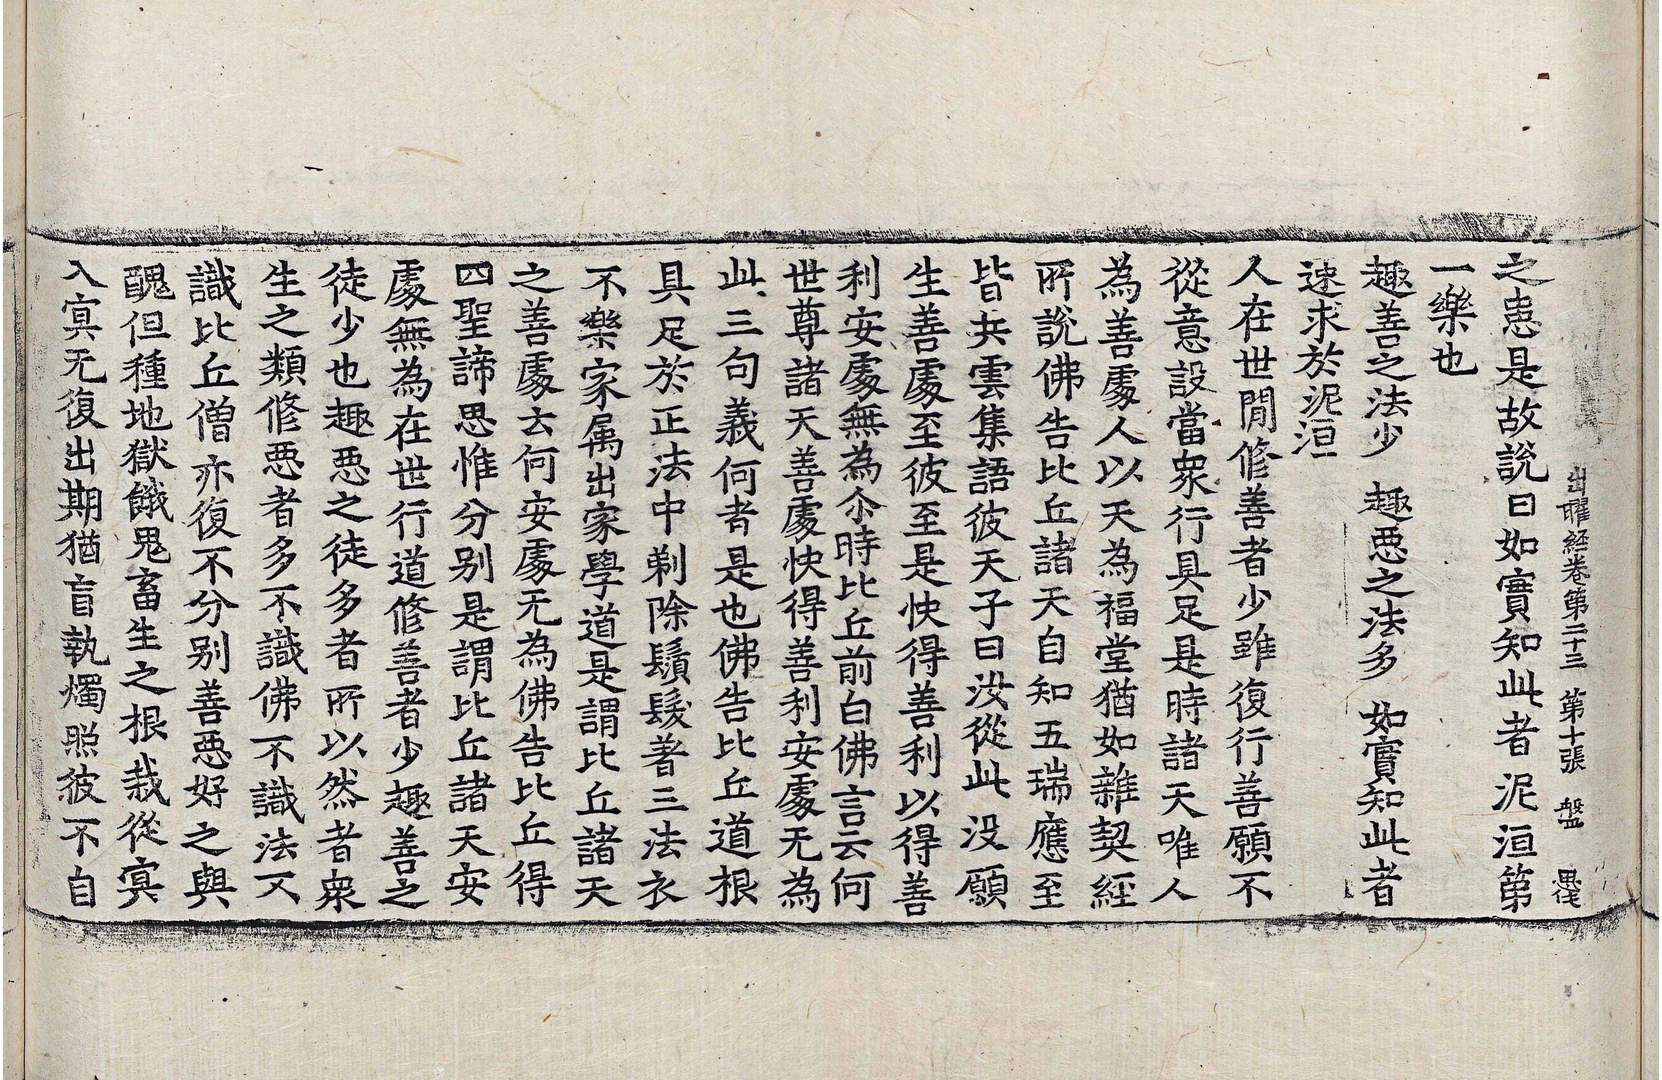 出曜経卷第二十三　第十張　盤
之恚是故說曰如實知此者泥洹第
一樂也
趣善之法少　趣悪之法多　如實知此者
速求於泥洹
人在世間修善者少雖復行善願不
從意設當衆行具足是時諸天唯人
為善䖏人以天為福堂猶如雜契経
所說佛告比丘諸天自知五瑞應至
皆共雲集語彼天子曰汝從此没願
生善䖏至彼至是快得善利以得善
利安䖏無為尒時比丘前白佛言云何
世尊諸天善䖏快得善利安䖏无為
此三句義何者是也佛告比丘道根
具足於正法中剃除鬚髮著三法衣
不樂家属出家學道是謂比丘諸天
之善䖏云何安䖏无為佛告比丘得
四聖諦思惟分别是謂比丘諸天安
䖏無為在世行道修善者少趣善之
徒少也趣悪之徒多者所以然者衆
生之類修悪者多不識佛不識法又
識比丘僧亦復不分别善悪好之與
醜但種地獄餓鬼畜生之根栽從㝠
入㝠无復出期猶盲執燭照彼不自